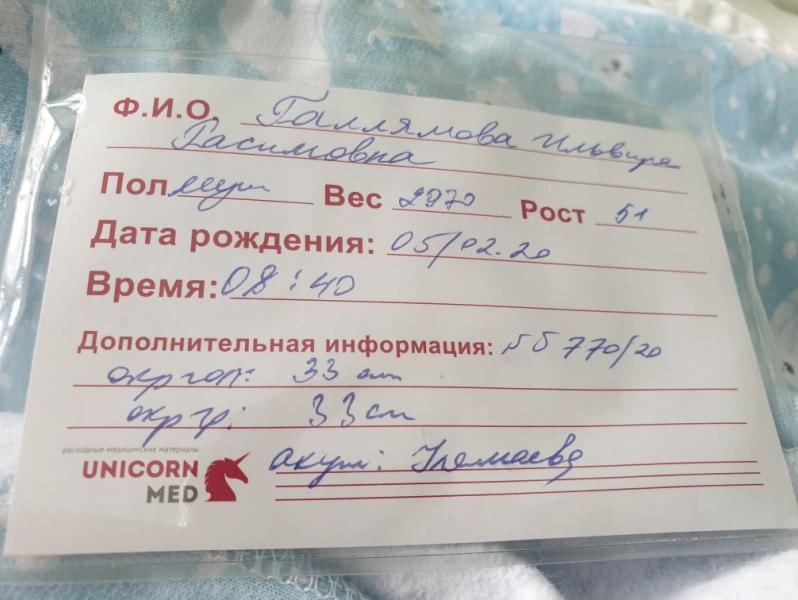 Ф.И.О. Галлямова Ильвира
Расимовна
Пол муж Вес 2970 Рост 51
Дата рождения: 05/02.20
Время: 08:40
Дополнительная информация: 770/20
окр гол: 33 см
окр гр: 33 см
расходные медицинские материалы
UNICORN
MED
акуш: